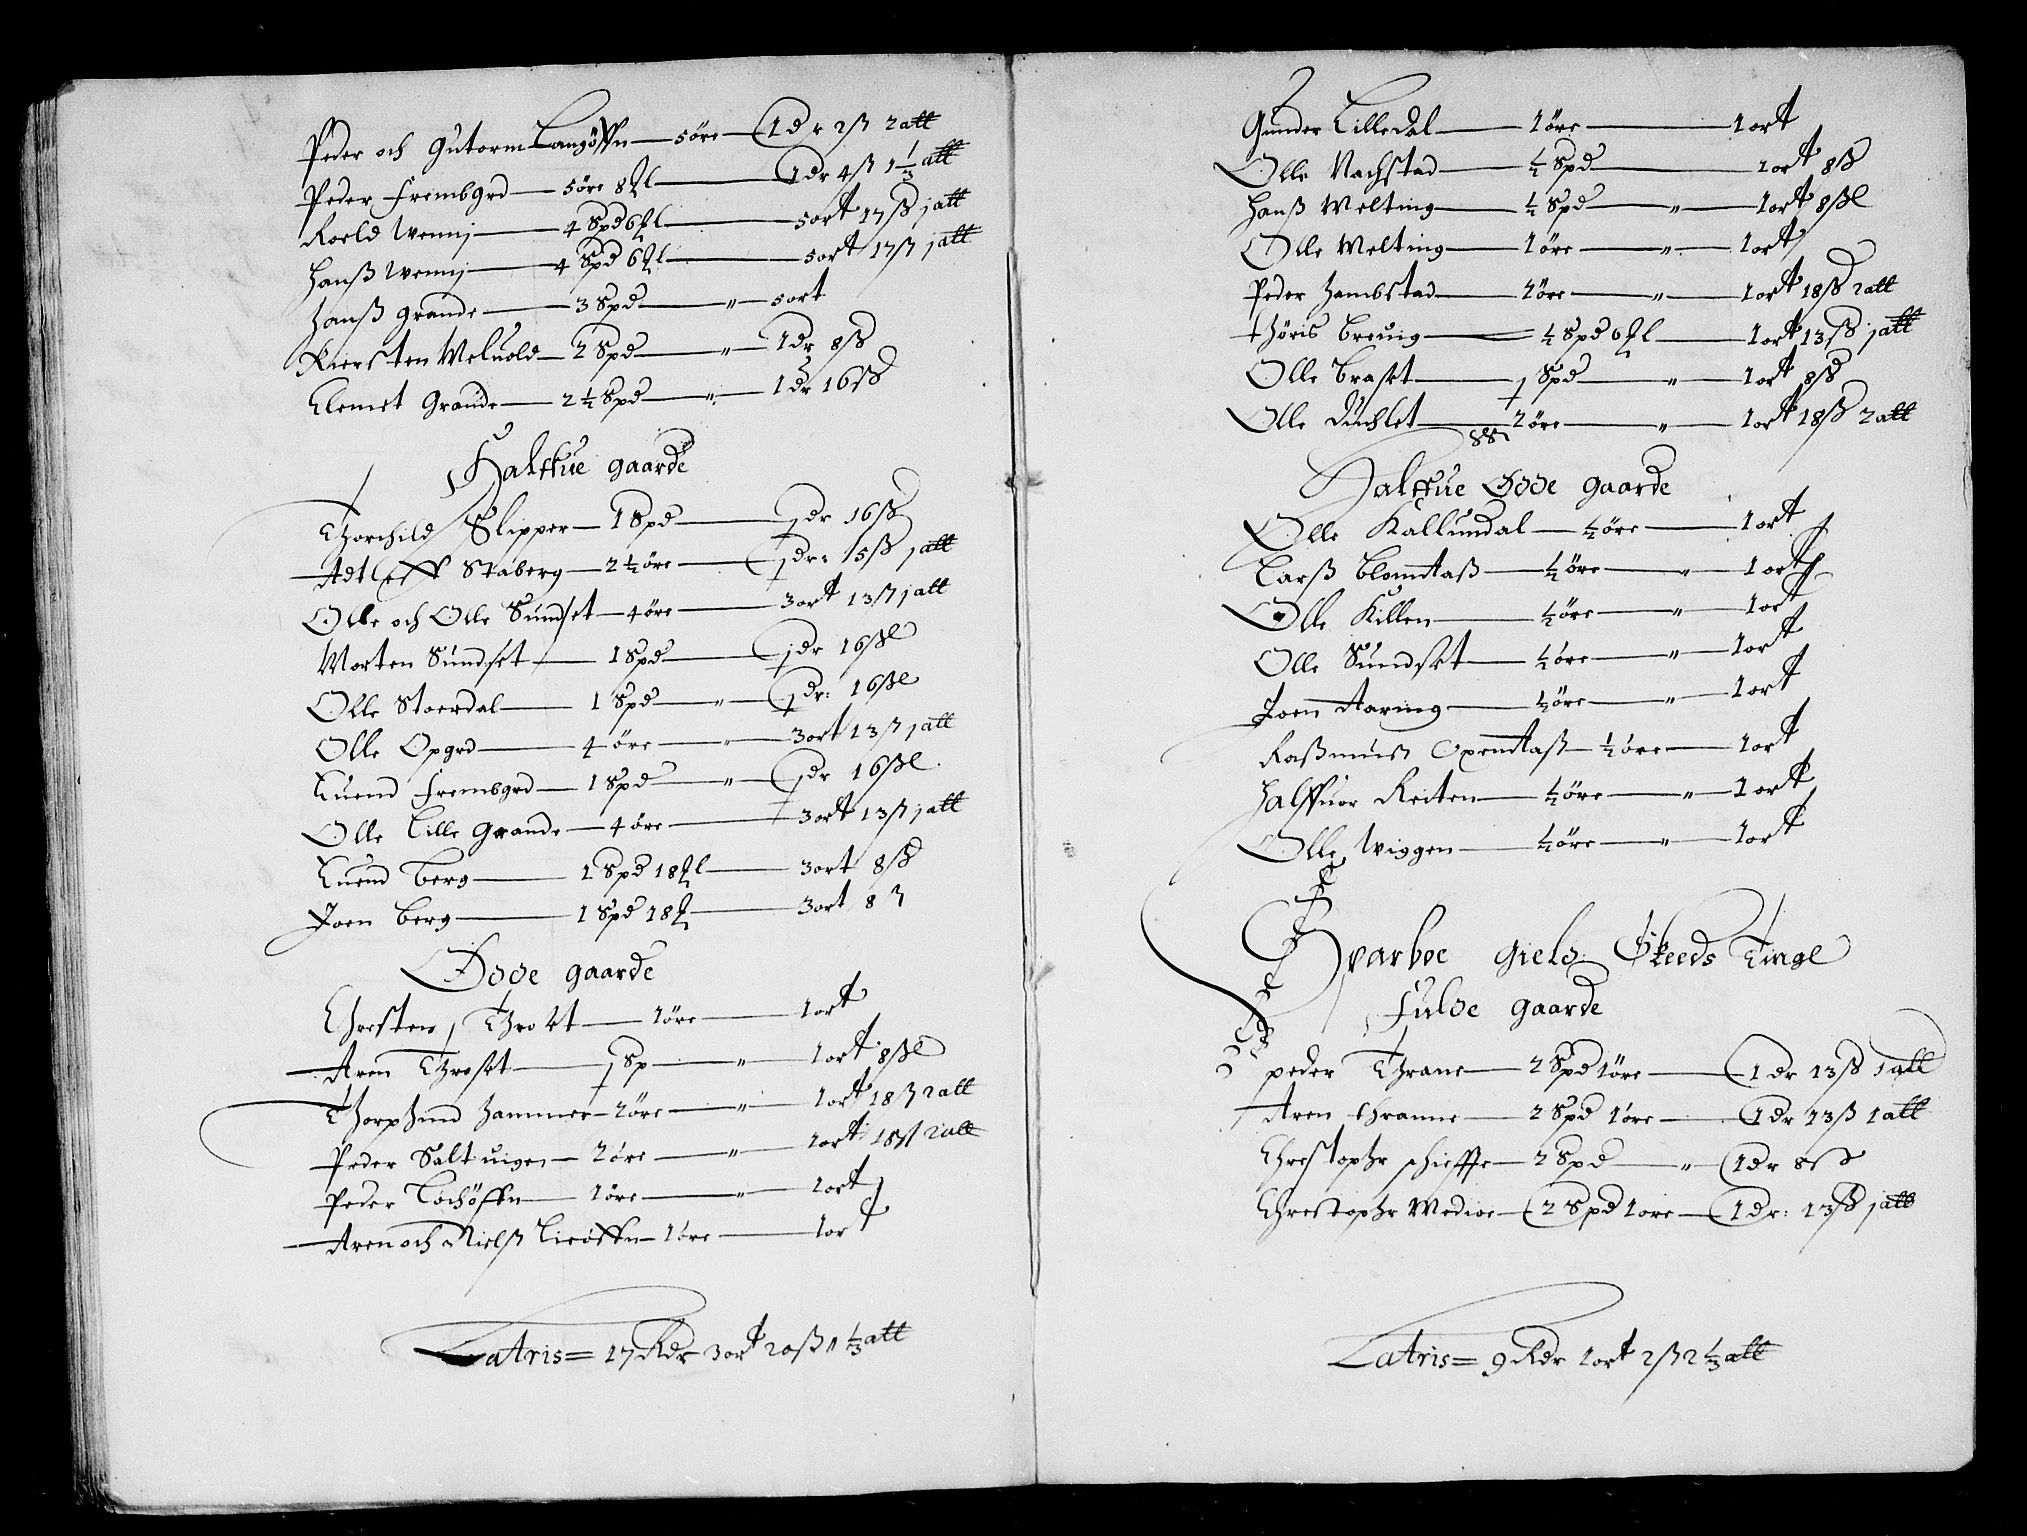 Peder och Gutorm Langöffn — 5öre — 1dr 2ß 2att
Peder Frembgrd — 5öre 8℔l — 1dr 4ß 1 1/3 att
Roeld Wennj — 4 Spd 6℔l — 5ort 17ß jatt
Hanß Wennj — 4 Spd 6℔l — 5ort 17ß jatt
Hanß Grande — 3 Spd — " — 5ort
Kiersten Meluold — 2 Spd — " — 1dr 8ß
Clemet Grande — 2 ½ Spd — " — 1dr 16ß
Halffue gaarde
Thorchild Slipper — 1 Spd — jdr 16ß
Adtleff Staberg — 2 ½ öre — jdr: 15ß jatt
Olle och Olle Sundset — 4 öre — 3ort 13ß jatt
Morten Sundset — 1 Spd — jdr 16ßl
Olle Stoerdal — 1 Spd — " — jdr: 16ßl
Olle Opgrd — 4 öre — " — 3ort 13ß jatt
Suend Frembgrd — 1 Spd — " — jdr 16ßl
Olle Lille Grande — 4 öre — 3ort 13ß jatt
Suend Berg — 1 Spd 18℔l — 3ort 8ß
Joen Berg — 1 Spd 18℔ — 3ort 8ß
Øde gaarde
Chresten Throset — 1öre — 1ort
Aren Throset — ½ Sp — " — 1ort 8ßl
Thorphind Hammer — 2öre — " — 1ort 18ß 2att
Peder Saltuigen — 2öre — " — 1ort 18ß 2att
Peder Lochöffn — 1öre — " — 1ort
Aren och Nielß Lieöffn — 1öre — 1ort
Latris = 17 Rdr 3ort 20ß " 1/3 att
Gunder Lilledal — 1öre — 1ort
Olle Nachstad — ½ Spd — 1ort 8ß
Hanß Melting — ½ Spd — " — 1ort 8ßl
Olle Melting — 1öre — " — 1ort
Peder Hambstad — 2öre — " — 1ort 18ß 2att
Thöris Breuig — ½ Spd 6℔l — 1ort 13ß jatt
Olle Braset — ½ Spd — " — 1ort 8ß
Olle Duchlet — 2öre — " — 1ort 18ß 2att
Halffue Øde gaarde
Olle Kallundal — ½ öre — 1ort
Larß Blomtaß — ½ öre — " — 1ort
Olle Killen — ½ öre — " — 1ort
Olle Sundset — ½ öre — " — 1ort
Joen Aaring — ½ öre — " — 1ort
Raßmus Oxemtaß — ½ öre — 1ort
Halffuor Reiten — ½ öre — " — 1ort
Olle Wiggen — ½ öre — " — 1ort
Sparboe gields Skeeds Tingl
Fulde gaarde
Peder Thrane — 2 Spd 1öre — 1 dr 13ß 1att
Aren Thranne — 2 Spd 1öre — 1dr 13ß 1att
Chrestophr schieffte — 2 Spd — " — 1dr 8ß
Chrestophr Medioe — 2 Spd 1ore — 1dr: 13ß jatt
Latris = 9 Rdr 1ort 2ß 2 1/3 att